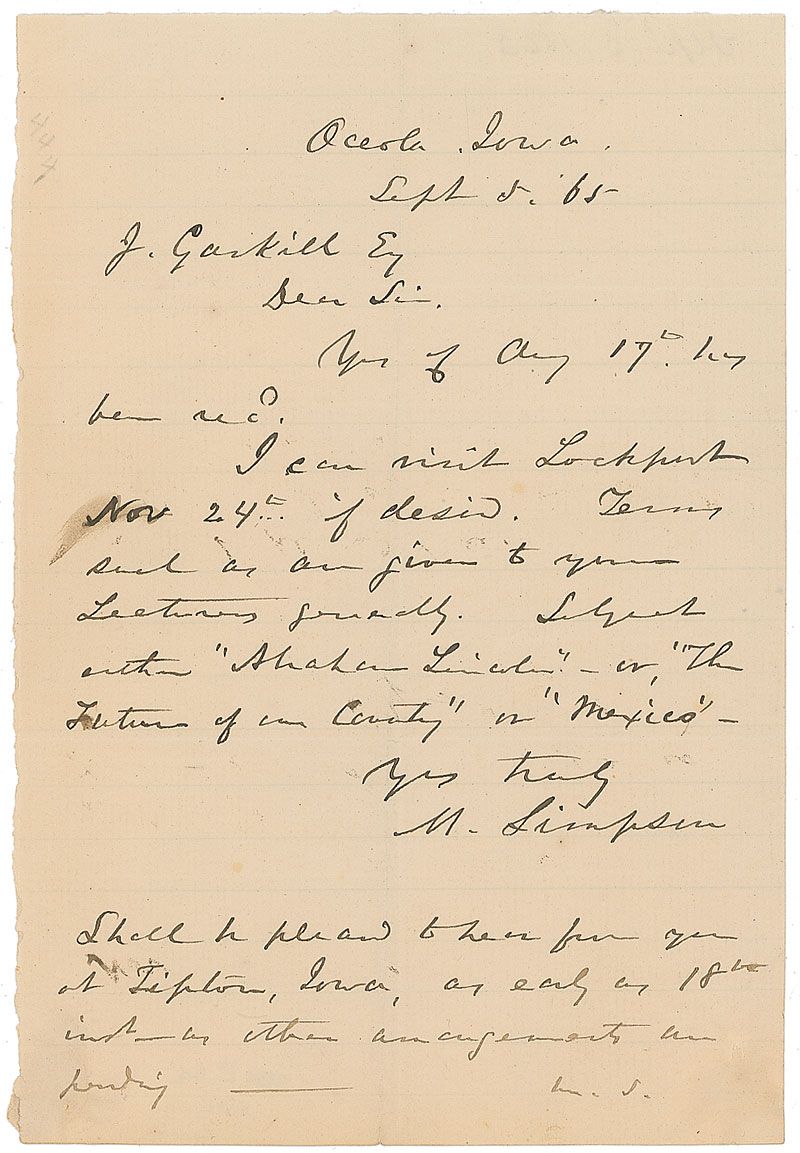 Oceola, Iowa.
Sept 5. 65
J. Gaskill Eq
Dear Sir.
Yrs of Aug 17th. has
been recd.
I can visit Lockport
Nov 24th. if desird. Terms
such as are given to your
Lecturers generally. Subject
either "Abraham Lincoln" – or, "The
Future of our Country" or "Mexico" –
Yrs truly
M. Simpson
Shall be pleasd to hear from you
at Tipton, Iowa, as early as 18th
inst – as other arrangements are
pending —— M. S.
444